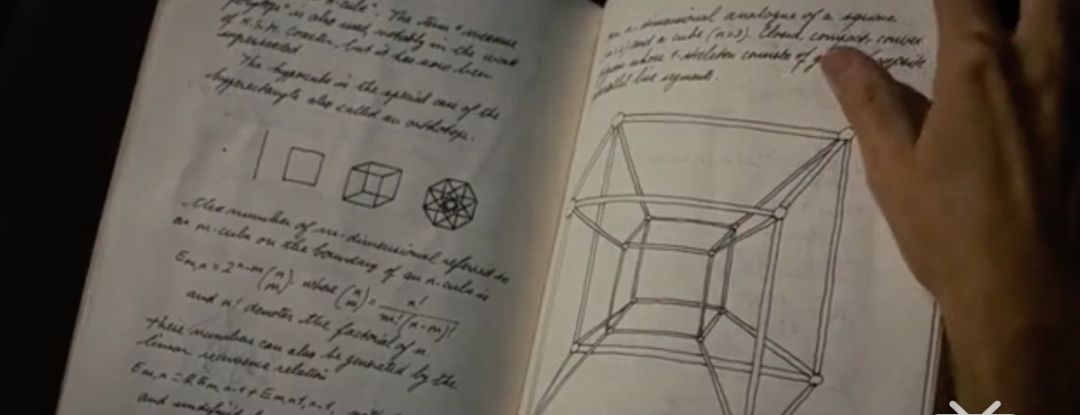 n-cube". The term "measure
polytope" is also used, notably in the work
of H.S.M. Coxeter, but it has now been
superseded.
The hypercube is the special case of the
hyperrectangle also called an orthotope.
The number of m-dimensional referred to
an m-cube on the boundary of an n-cube is
Em,n = 2^n-m (n m), where (n m) = n! / m!(n-m)!
and n! denotes the factorial of n.
These numbers can also be generated by the
linear recurrence relation
Em,n = 2Em,n-1 + Em-1,n-1,
and undefined
an n-dimensional analogue of a square
and a cube (n=3). Closed, compact, convex
figure whose 1-skeleton consists of opposite
parallel line segments.